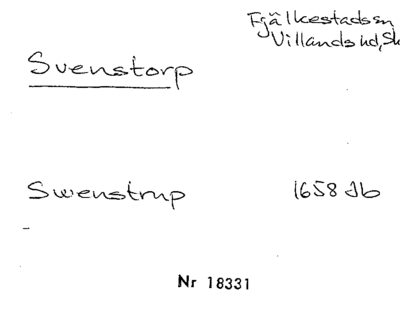 Fjälkestads sn,
Villands hd, Sk
Svenstorp
Swenstrup 1658 Jb
Nr 18331